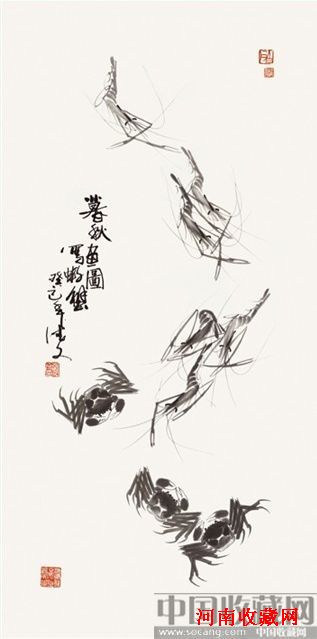 暮秋畫圖
寫蝦蟹
癸巳年
中国收藏网
河南收藏网
www.socang.com 中国收藏网